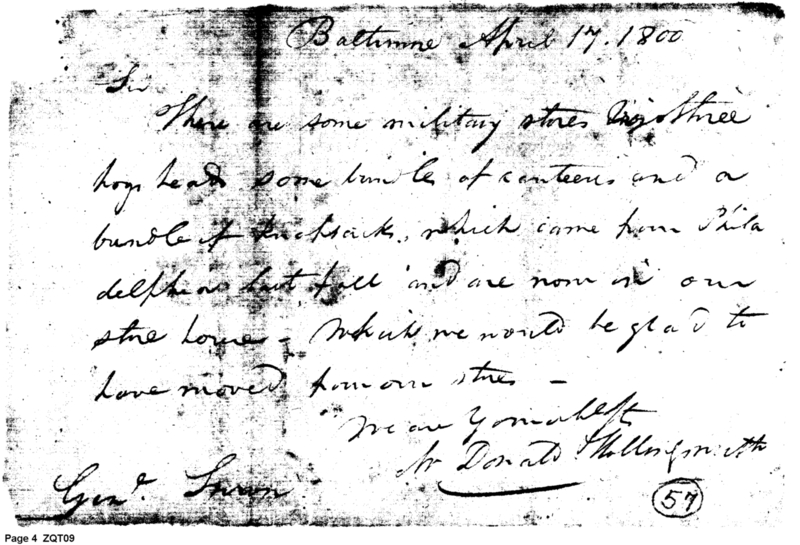 Baltimore April 17. 1800
Sir
There are some military stores three
hogsheads some bundles of canteens and a
bundle of knapsacks, which came from Phila
delphia last fall and are now in our
store house - which we would be glad to
have moved from our stores -
We are your
Donald
Genl.
57
Page 4 ZQT09